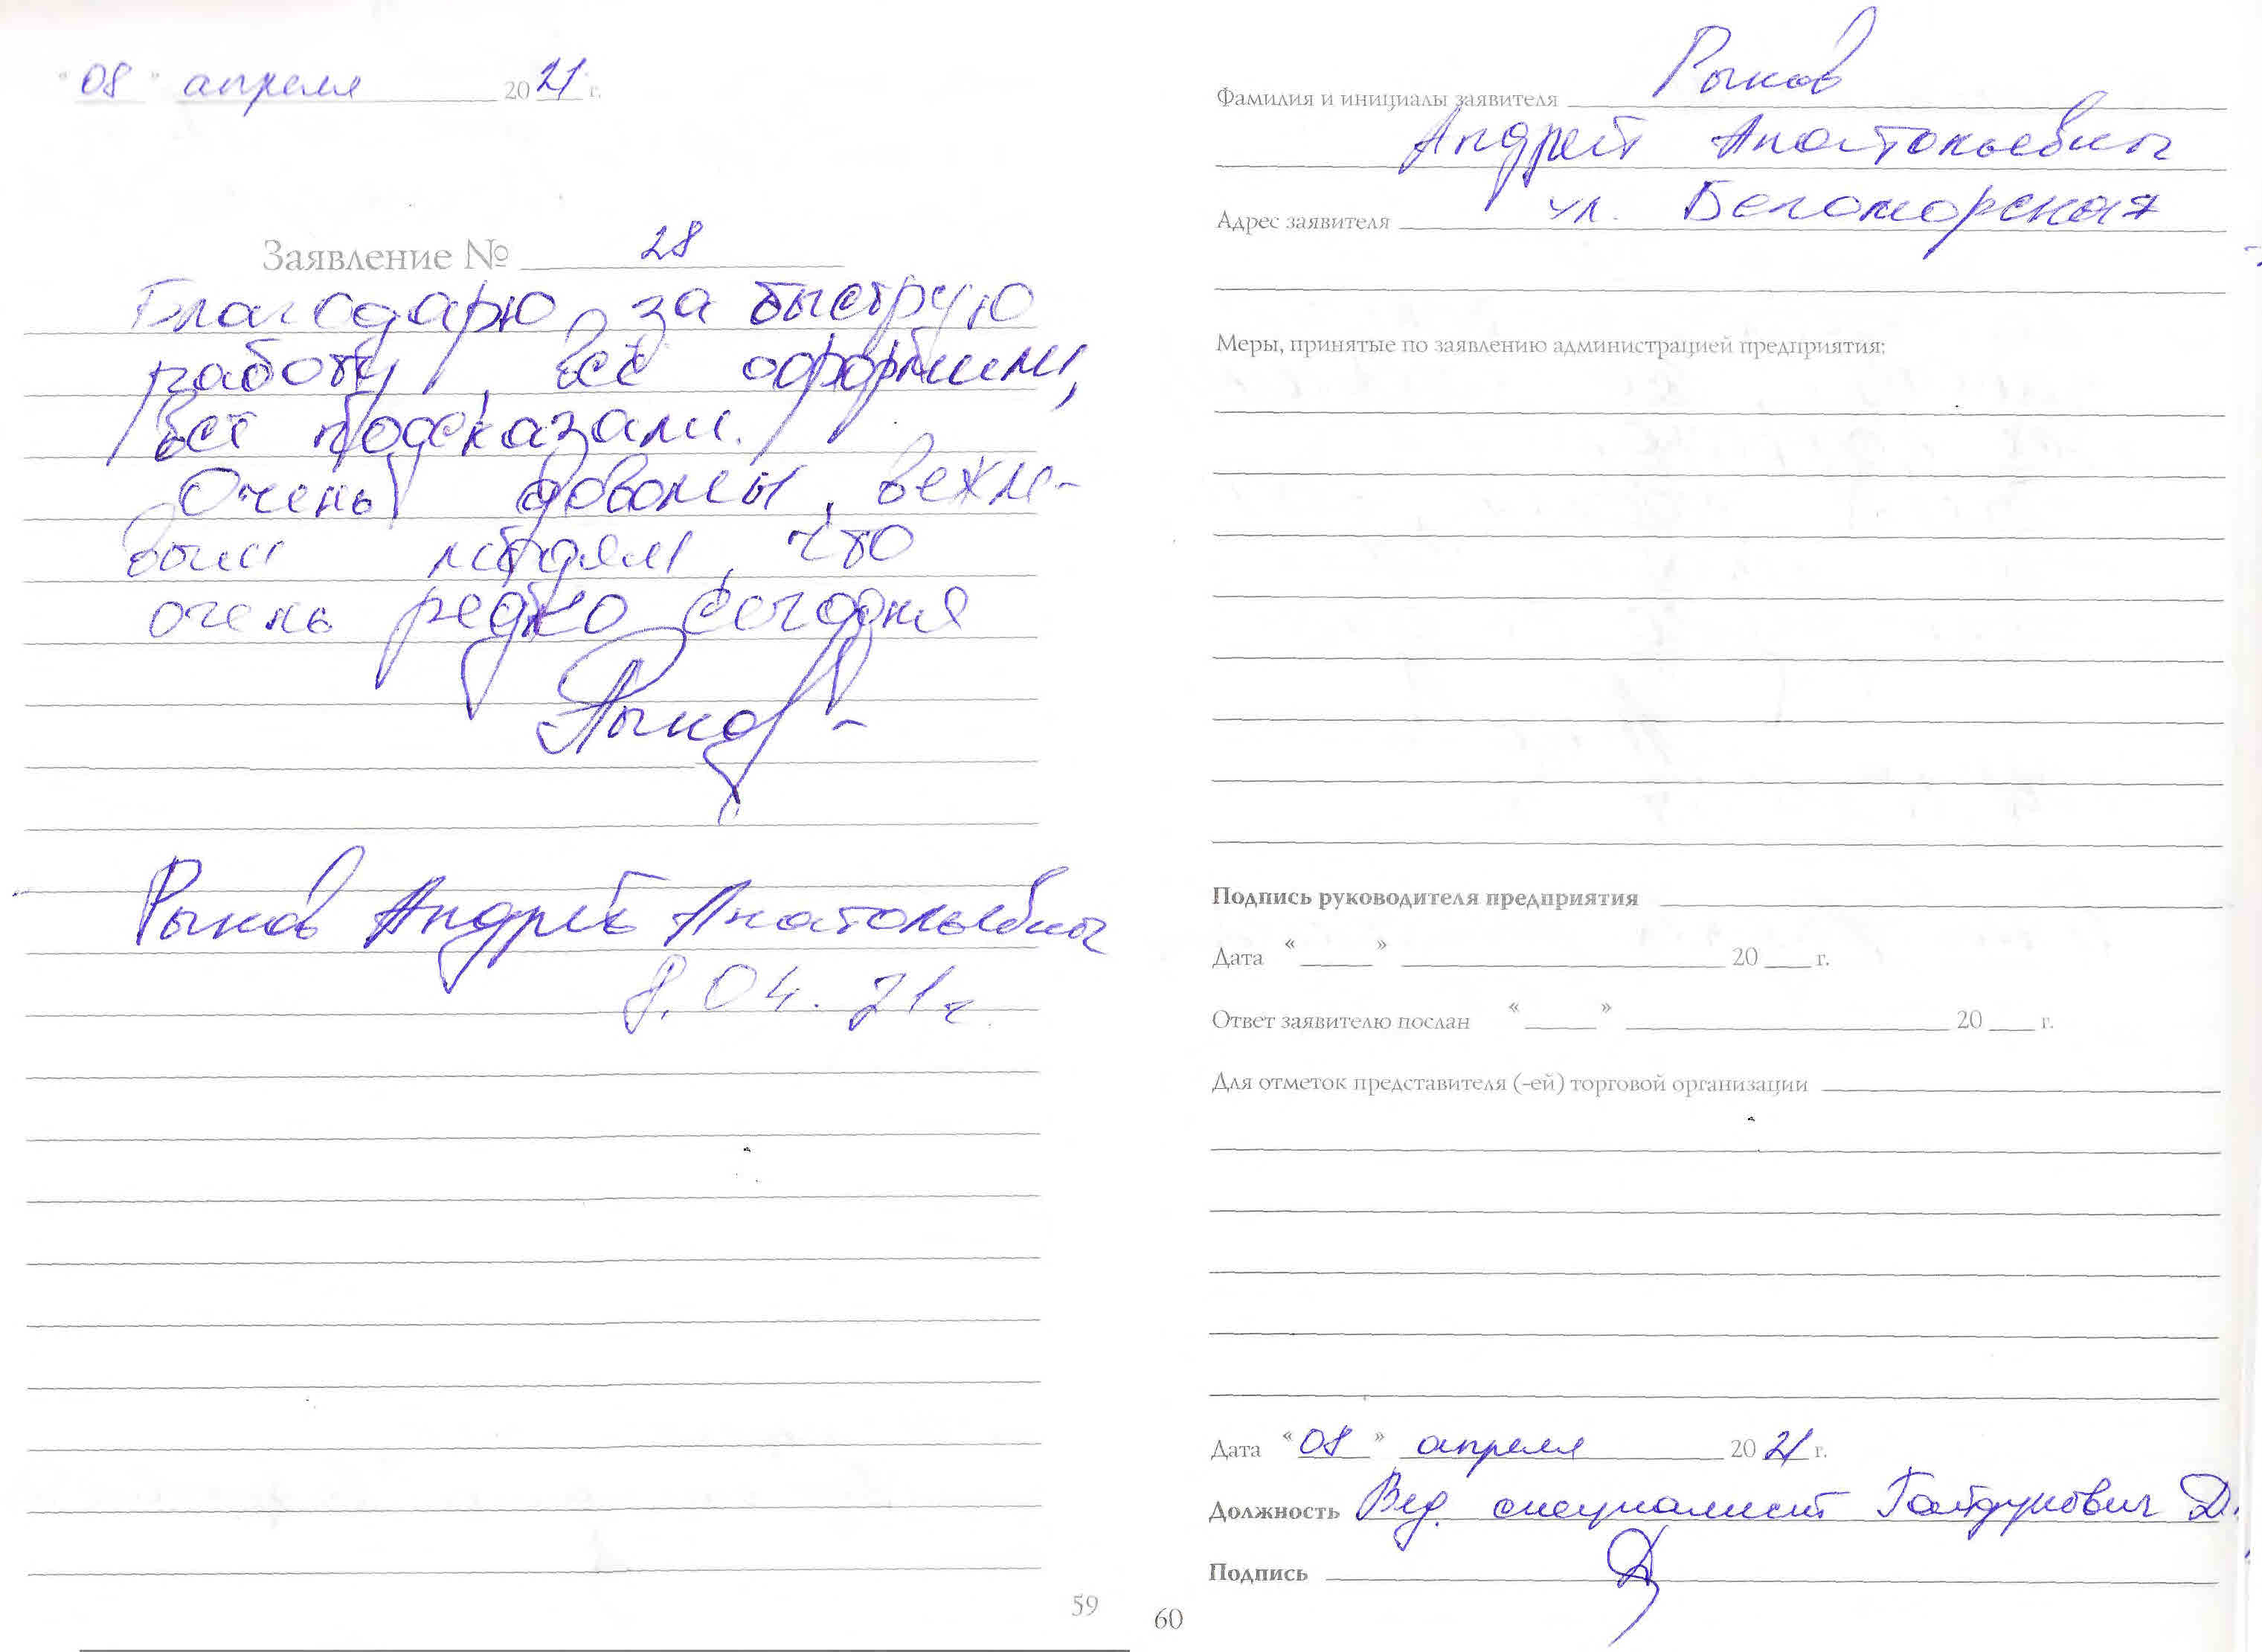 " 08 " апреля 20 21 г.
Заявление № 28
Благодарю за быструю
работу, всё оформили,
всё подсказали.
Очень довольны, вежли-
выи людям, что
очень редко сегодня
Рыков
Рыков Андрей Анатольевич
8.04.21г.
59
Фамилия и инициалы заявителя Рыков
Андрей Анатольевич
Адрес заявителя ул. Беломорская
Меры, принятые по заявлению администрацией предприятия:
Подпись руководителя предприятия
Дата " " 20 г.
Ответ заявителю послан " " 20 г.
Для отметок представителя (-ей) торговой организации
Дата " 08 " апреля 20 21 г.
Должность Вед. специалист Гайдукович Д.
Подпись
60